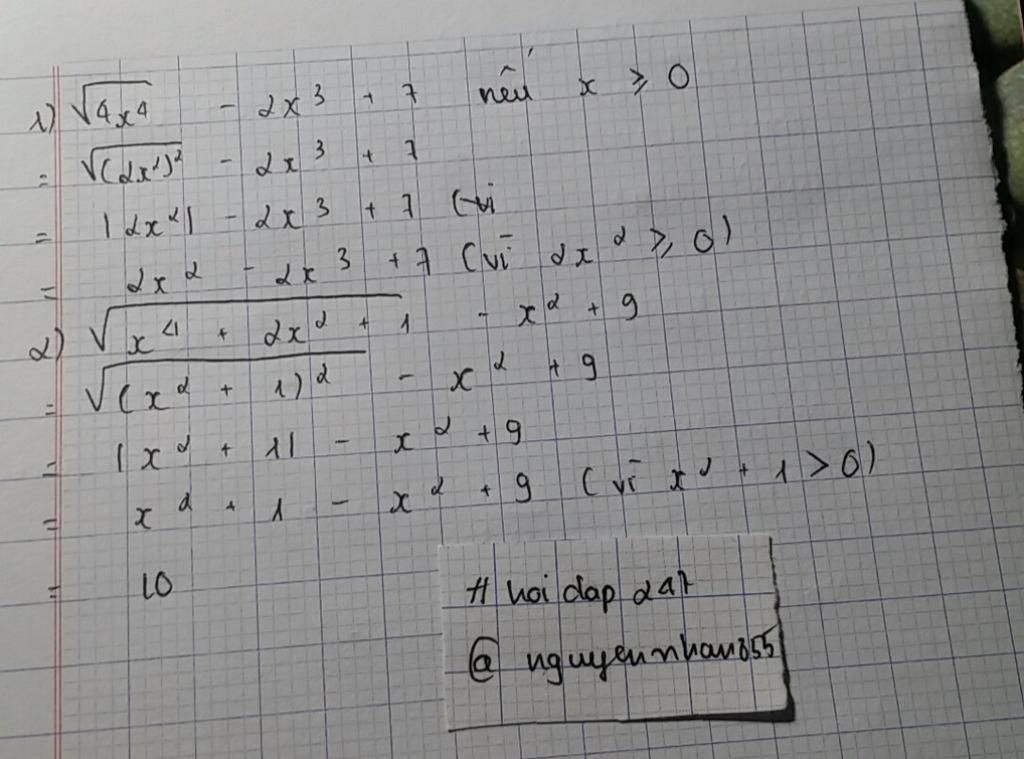 1) √4x⁴ - 2x³ + 7 nếu x ≥ 0
= √(2x²)² - 2x³ + 7
= |2x²| - 2x³ + 7 (vi
= 2x² - 2x³ + 7 (vì 2x² ≥ 0)
2) √x⁴ + 2x² + 1 - x² + 9
= √(x² + 1)² - x² + 9
= |x² + 1| - x² + 9
= x² + 1 - x² + 9 (vì x² + 1 > 0)
= 10
# hoi dap 247
@ nguyennhan855